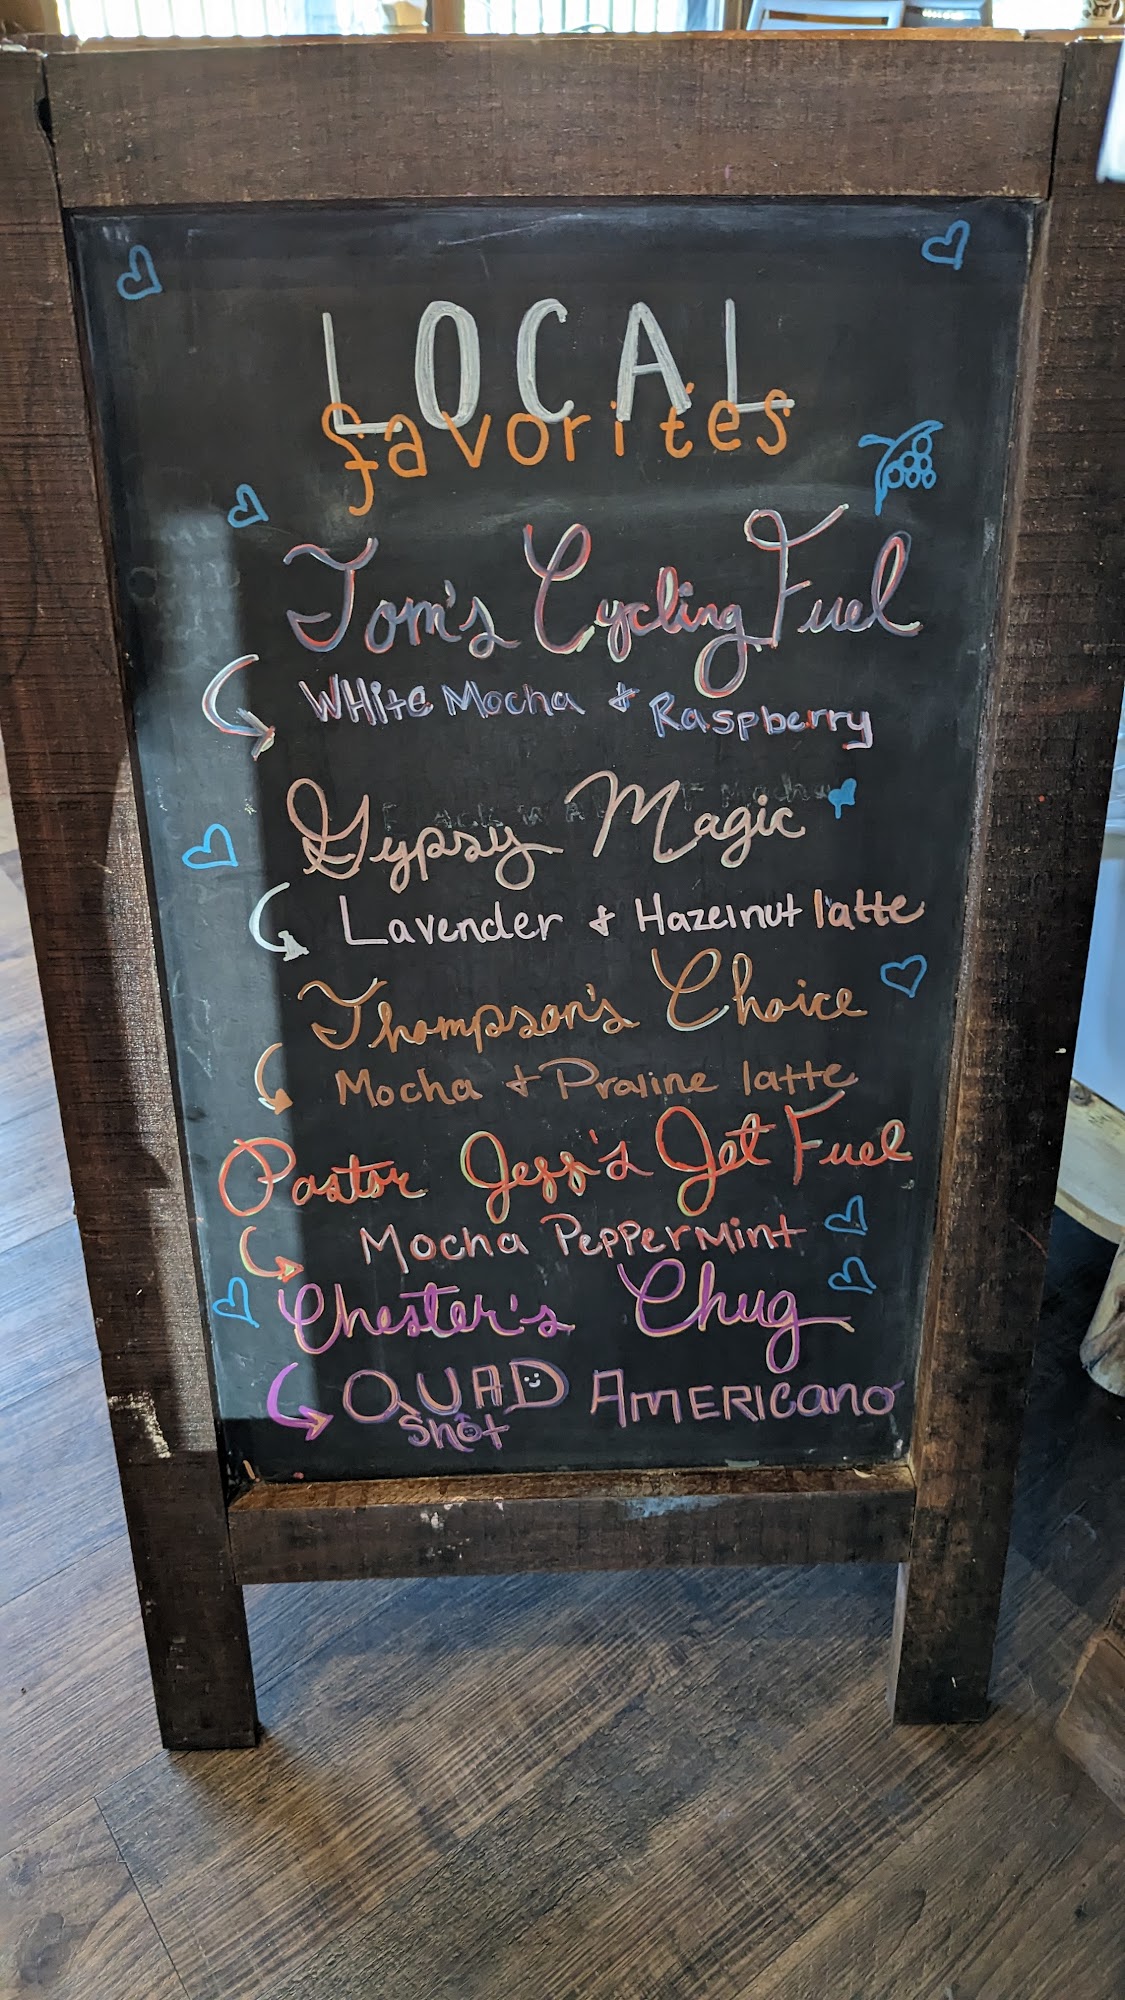 LOCAL
favorites
Tom's Cycling Fuel
WHite Mocha & Raspberry
Gypsy Magic
Lavender & Hazelnut latte
Thompson's Choice
Mocha & Praline latte
Pastor Jeff's Jet Fuel
Mocha PePPerMint
Chester's Chug
QUAD AMERICANO
Shot